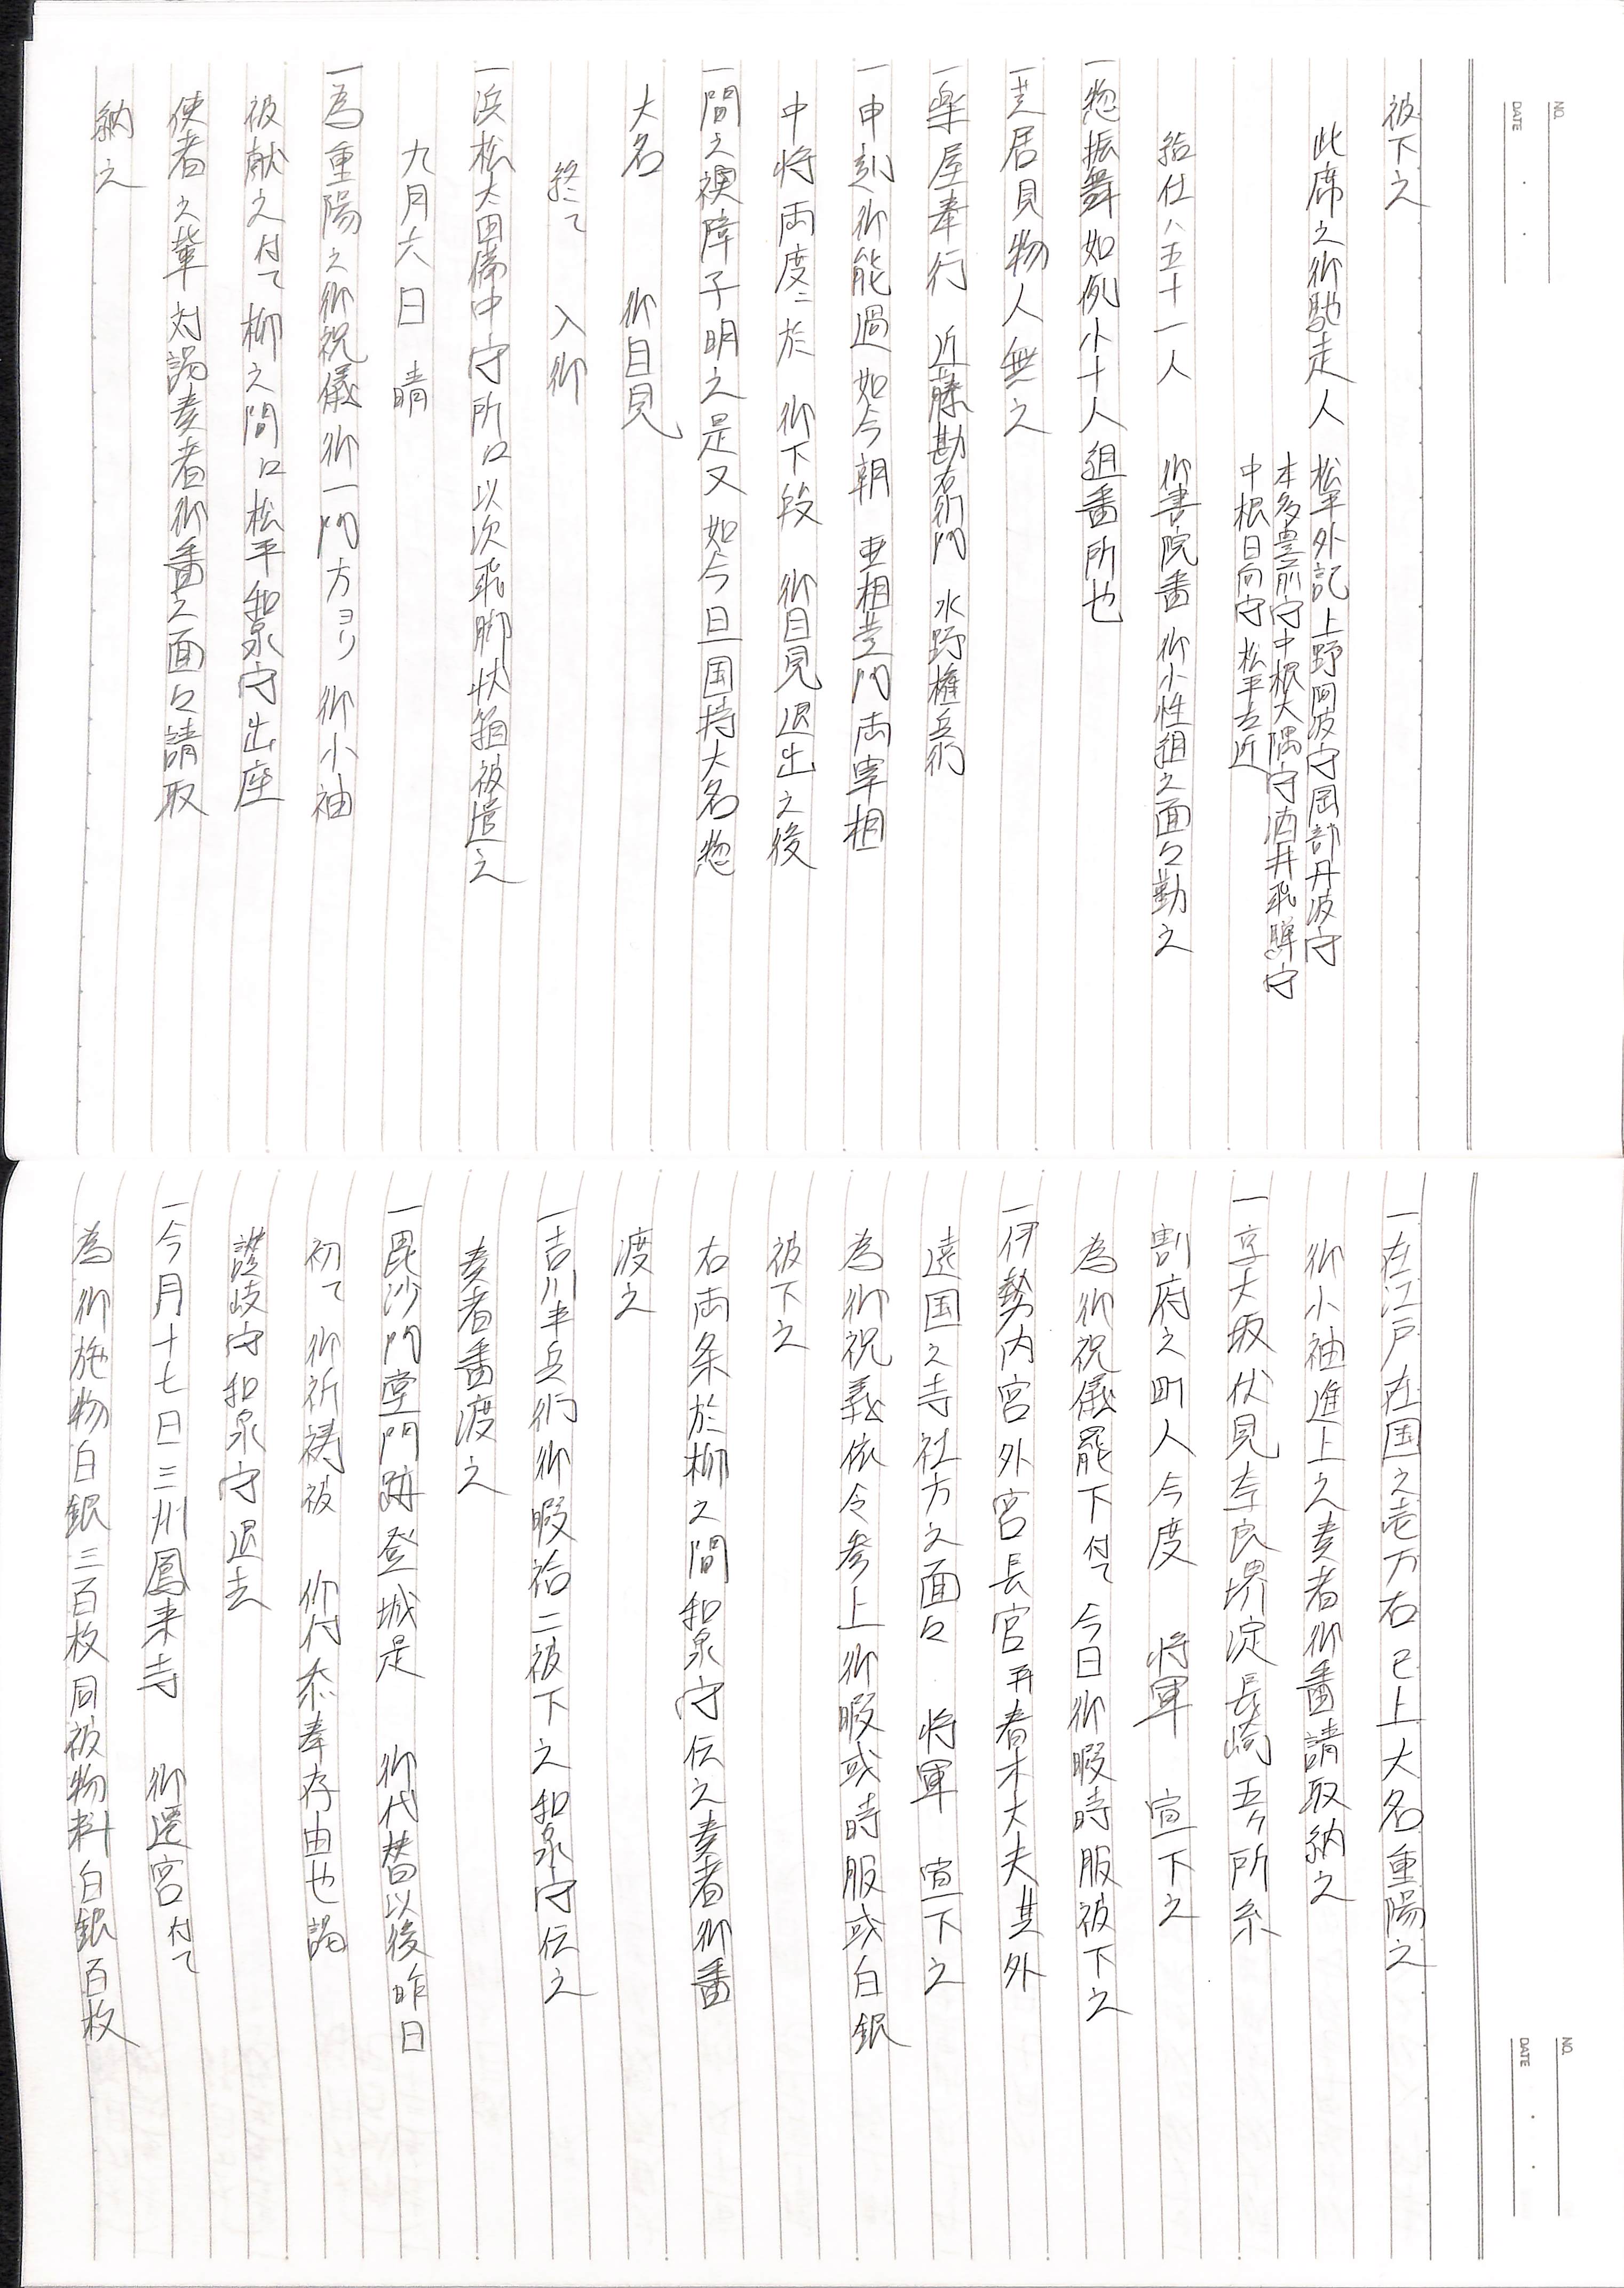 NO.
DATE
被下之
此席之御馳走人 松平外記上野阿波守岡部丹波守
本多豊前守中根大隅守酒井飛騨守
中根日向守 松平左近
給仕ハ五十一人 御書院番 御小性組之面々勤之
一惣振舞如例小十人組番所也
一芝居見物人無之
一楽屋奉行 近藤勘右衛門 水野権兵衛
一申刻御能過如今朝 亜相黄門両宰相
中将両度ニ於 御下段 御目見退出之後
一間之襖障子明之是又如今旦国持大名惣
大名 御目見
終て 入御
一浜松太田備中守所江以次飛脚状箱被遣之
九月六日 晴
一為重陽之御祝儀御一門方ヨリ 御小袖
被献之付て 柳之間江松平和泉守出座
使者之輩対謁奏者御番之面々請取
納之
NO.
DATE
一在江戸在国之壱万石已上大名重陽之
御小袖進上之奏者御番請取納之
一京大坂伏見奈良堺淀長崎五ケ所糸
割府之町人今度 将軍 宣下之
為御祝儀罷下付て 今日御暇時服被下之
一伊勢内宮外宮長官再春木大夫其外
遠国之寺社方之面々 将軍 宣下之
為御祝義依令参上御暇或時服或白銀
被下之
右両条於柳之間和泉守伝之奏者御番
渡之
一吉川半兵衛御暇袷二被下之和泉守伝之
奏者番渡之
一毘沙門堂門跡登城是 御代替以後昨日
初て 御祈祷被 仰付忝奉存由也謁
讃岐守和泉守退去
一今月十七日三州鳳来寺 御遷宮付て
為御施物白銀三百枚同被物料白銀百枚